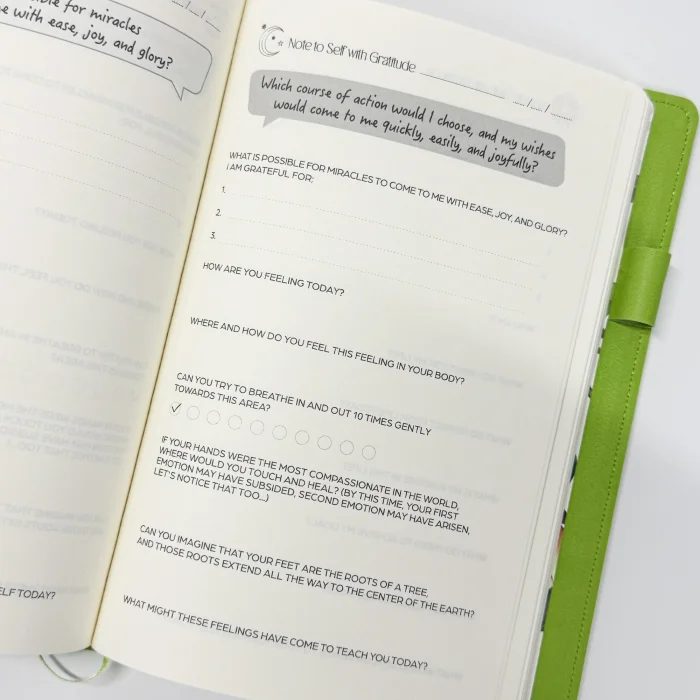 ble for miracles
e with ease, joy, and glory?
ELF TODAY?
Note to Self with Gratitude
Which course of action would I choose, and my wishes
would come to me quickly, easily, and joyfully?
WHAT IS POSSIBLE FOR MIRACLES TO COME TO ME WITH EASE, JOY, AND GLORY?
I AM GRATEFUL FOR:
1.
2.
3.
HOW ARE YOU FEELING TODAY?
WHERE AND HOW DO YOU FEEL THIS FEELING IN YOUR BODY?
CAN YOU TRY TO BREATHE IN AND OUT 10 TIMES GENTLY
TOWARDS THIS AREA?
IF YOUR HANDS WERE THE MOST COMPASSIONATE IN THE WORLD,
WHERE WOULD YOU TOUCH AND HEAL? (BY THIS TIME, YOUR FIRST
EMOTION MAY HAVE SUBSIDED, SECOND EMOTION MAY HAVE ARISEN,
LET'S NOTICE THAT TOO...)
CAN YOU IMAGINE THAT YOUR FEET ARE THE ROOTS OF A TREE,
AND THOSE ROOTS EXTEND ALL THE WAY TO THE CENTER OF THE EARTH?
WHAT MIGHT THESE FEELINGS HAVE COME TO TEACH YOU TODAY?